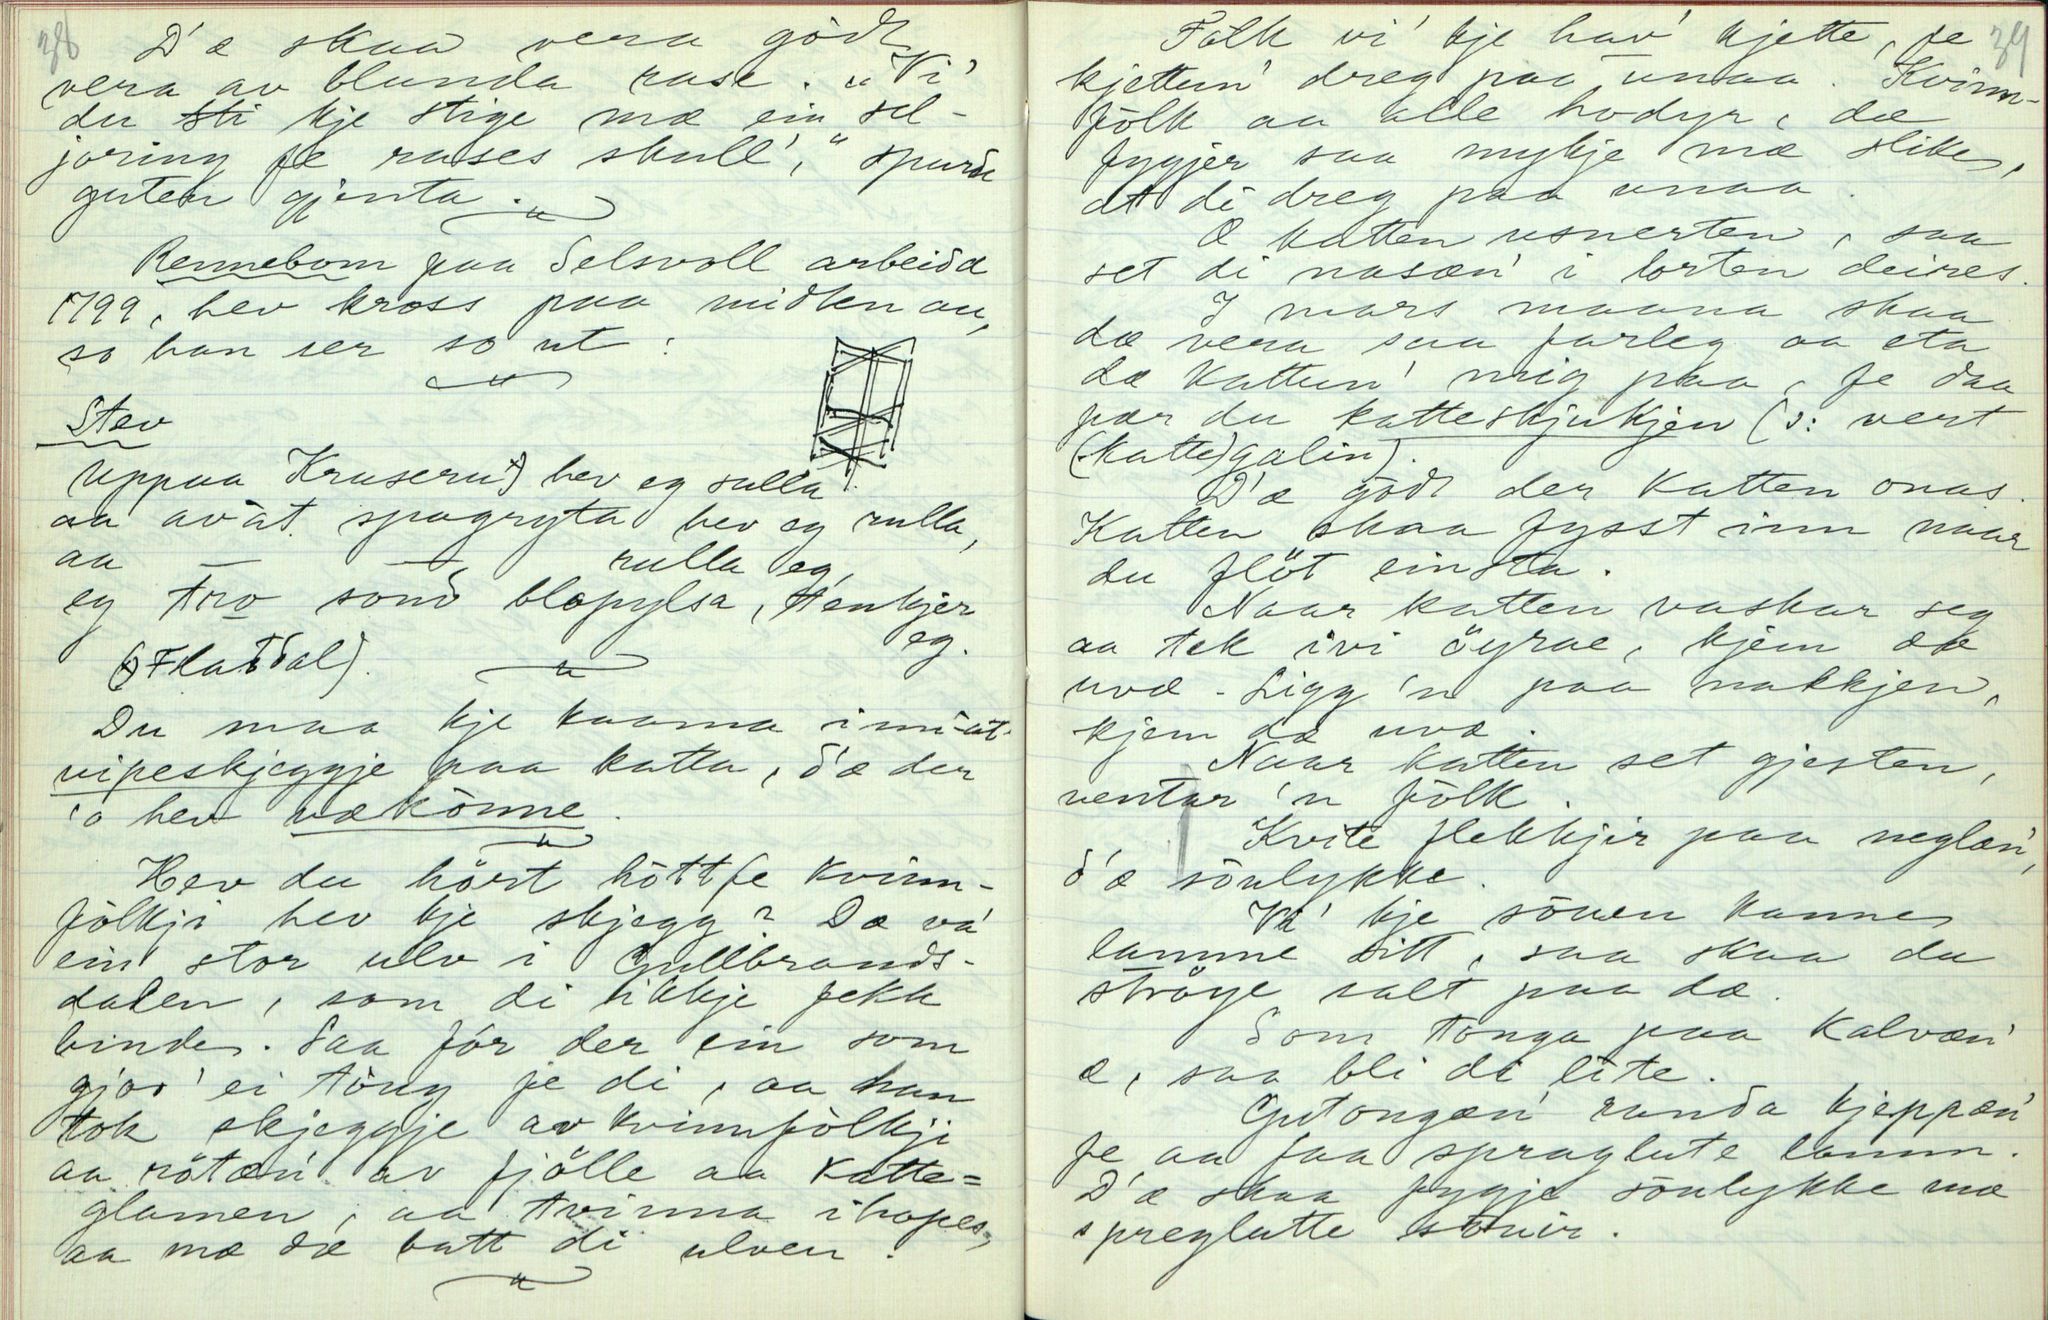 38
D'æ skaa vera gòdt
vera av blanda rase. „Vi'
du kje stige mæ ein sel-
joring fe rases skull',“ spurde
guten gjenta.
Rennebom paa Selsvoll arbeidd
1799, hev kross paa midten au,
so han ser so ut:
Stev
Uppaa Kruseru x) hev eg sulla
aa avat spagryta hev eg rulla,
aa — — rulla eg,
eg tro som blopylsa, tenkjer
eg.
(x) Flatdal).
Du maa kje kaama imi-at-
vipeskjeggje paa katta, d'æ der
'o hev vækònne.
Hev du hört hòtt fe kvinn-
fòlkji hev kje skjegg? Dæ va'
ein stor ulv i Gullbrands-
dalen, som di ikkje fekk
binde. Saa fór der ein som
gjor' ei töug fe di, aa han
tok skjeggje av kvinnfòlkji
aa rötæn' av fjölle aa katte=
glamen, aa tvinna ihopes,
aa mæ dæ batt di ulven.
39
Fòlk vi' kje hav' kjette, fe
kjettun' dreg paa unaa. Kvinn-
fòlk aa alle hodyr, dæ
fygjer saa mykje mæ slike,
at di dreg paa unaa.
Æ katten usnerten, saa
set di nasæn' i lorten deires.
I mars maana skaa
dæ vera saa farleg aa eta
dæ kattun' mig paa, fe daa
fær du katteskjukjen (ɔ: vert
(katte)galin).
D'æ gòdt der katten onas.
Katten skaa fysst inn naar
du flöt einsta.
Naar katten vaskar seg
aa tek ivi öyrae, kjem dæ
uvæ. Ligg 'n paa nakkjen,
kjem dæ uvæ.
Naar katten set gjesten,
ventar 'n fòlk.
Kvite flekkjir paa neglæn',
d'æ sönlykke.
Vi' kje söuen kannes
lamme sitt, saa skaa du
ströye salt paa dæ.
Som tonga paa kalvæn'
æ, saa bli di lite.
Gutongæn' randa kjeppæn'
fe aa faa spraglute lamm.
D'æ skaa fygje söulykke mæ
spreglutte söuir.